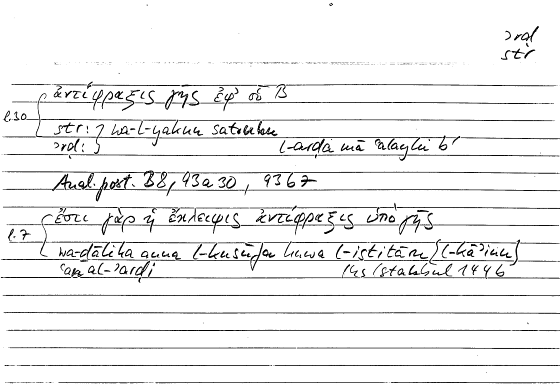 ʾrḍ
str
l.30 ἀντίφραξις γῆς ἐφ' οὗ B
str: } wa-l-yakun satruhu
ʾrḍ: } l-arḍa mā ʿalayhi b
Anal. post. B8, 93a30, 93b7
l.7 ἔστι γὰρ ἡ ἔκλειψις ἀντίφραξις ὑπὸ γῆς
wa-ḏālika anna l-kusūfa huwa l-istitāru (l-kāʾinu)
ʿan al-ʾarḍi Hs Istanbul 1446